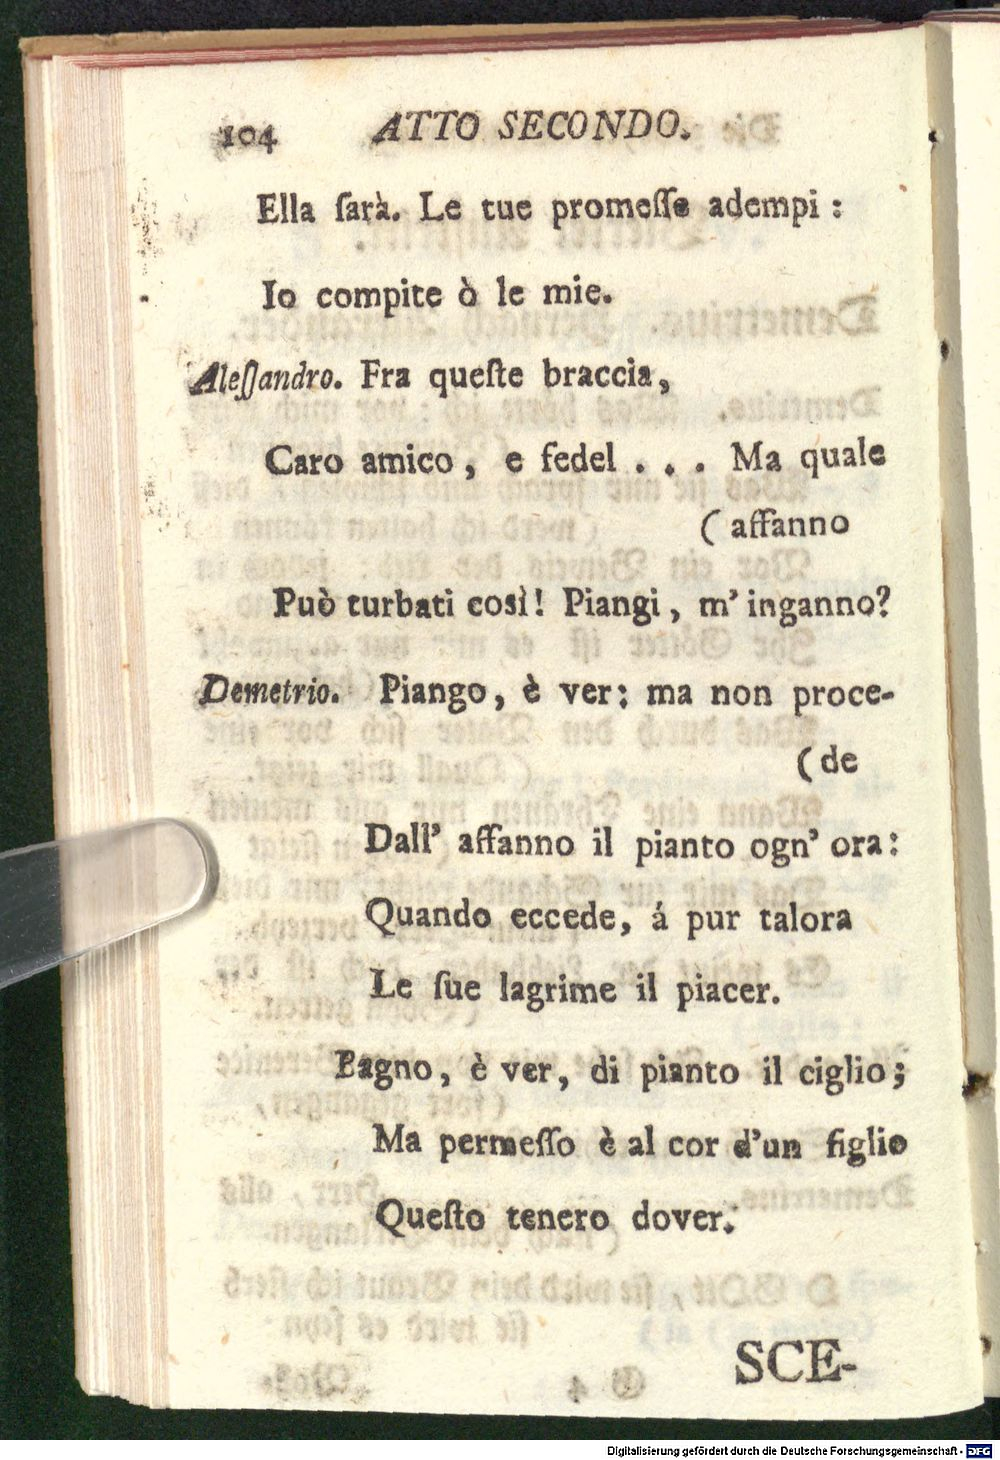 104 ATTO SECONDO.
Ella ſarà. Le tue promeſſe adempi:
Io compite ò le mie.
Aleſſandro. Fra queſte braccia,
Caro amico, e fedel . . . Ma quale
(affanno
Può turbati così! Piangi, m' inganno?
Demetrio. Piango, è ver; ma non proce-
(de
Dall' affanno il pianto ogn' ora:
Quando eccede, á pur talora
Le ſue lagrime il piacer.
Bagno, è ver, di pianto il ciglio;
Ma permeſſo è al cor d'un figlio
Queſto tenero dover.
SCE-
Digitalisierung gefördert durch die Deutsche Forschungsgemeinschaft - DFG